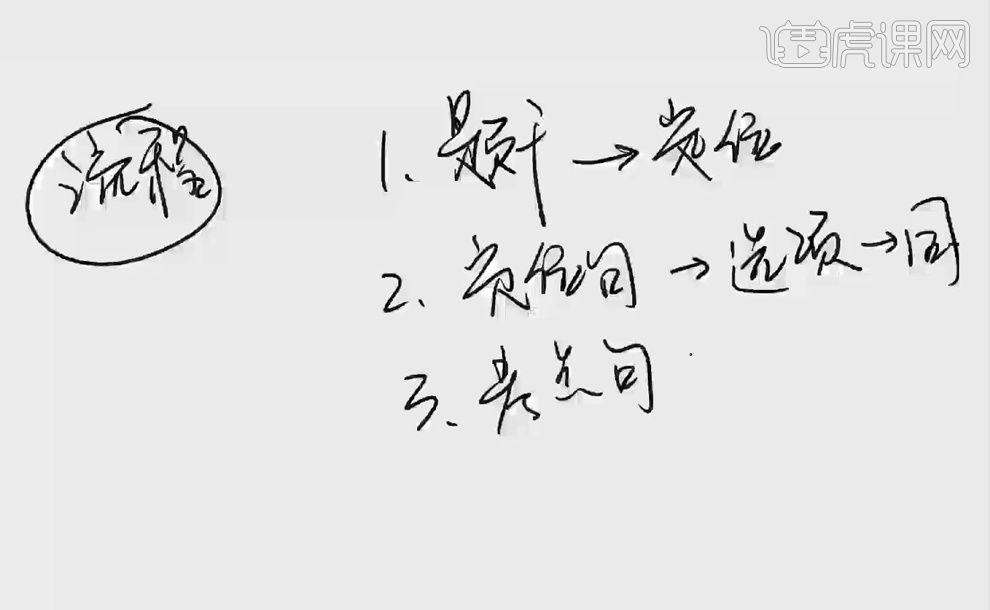 虎课网
流程
1. 题干 → 定位
2. 定位句 → 选项 → 同
3. 考点句